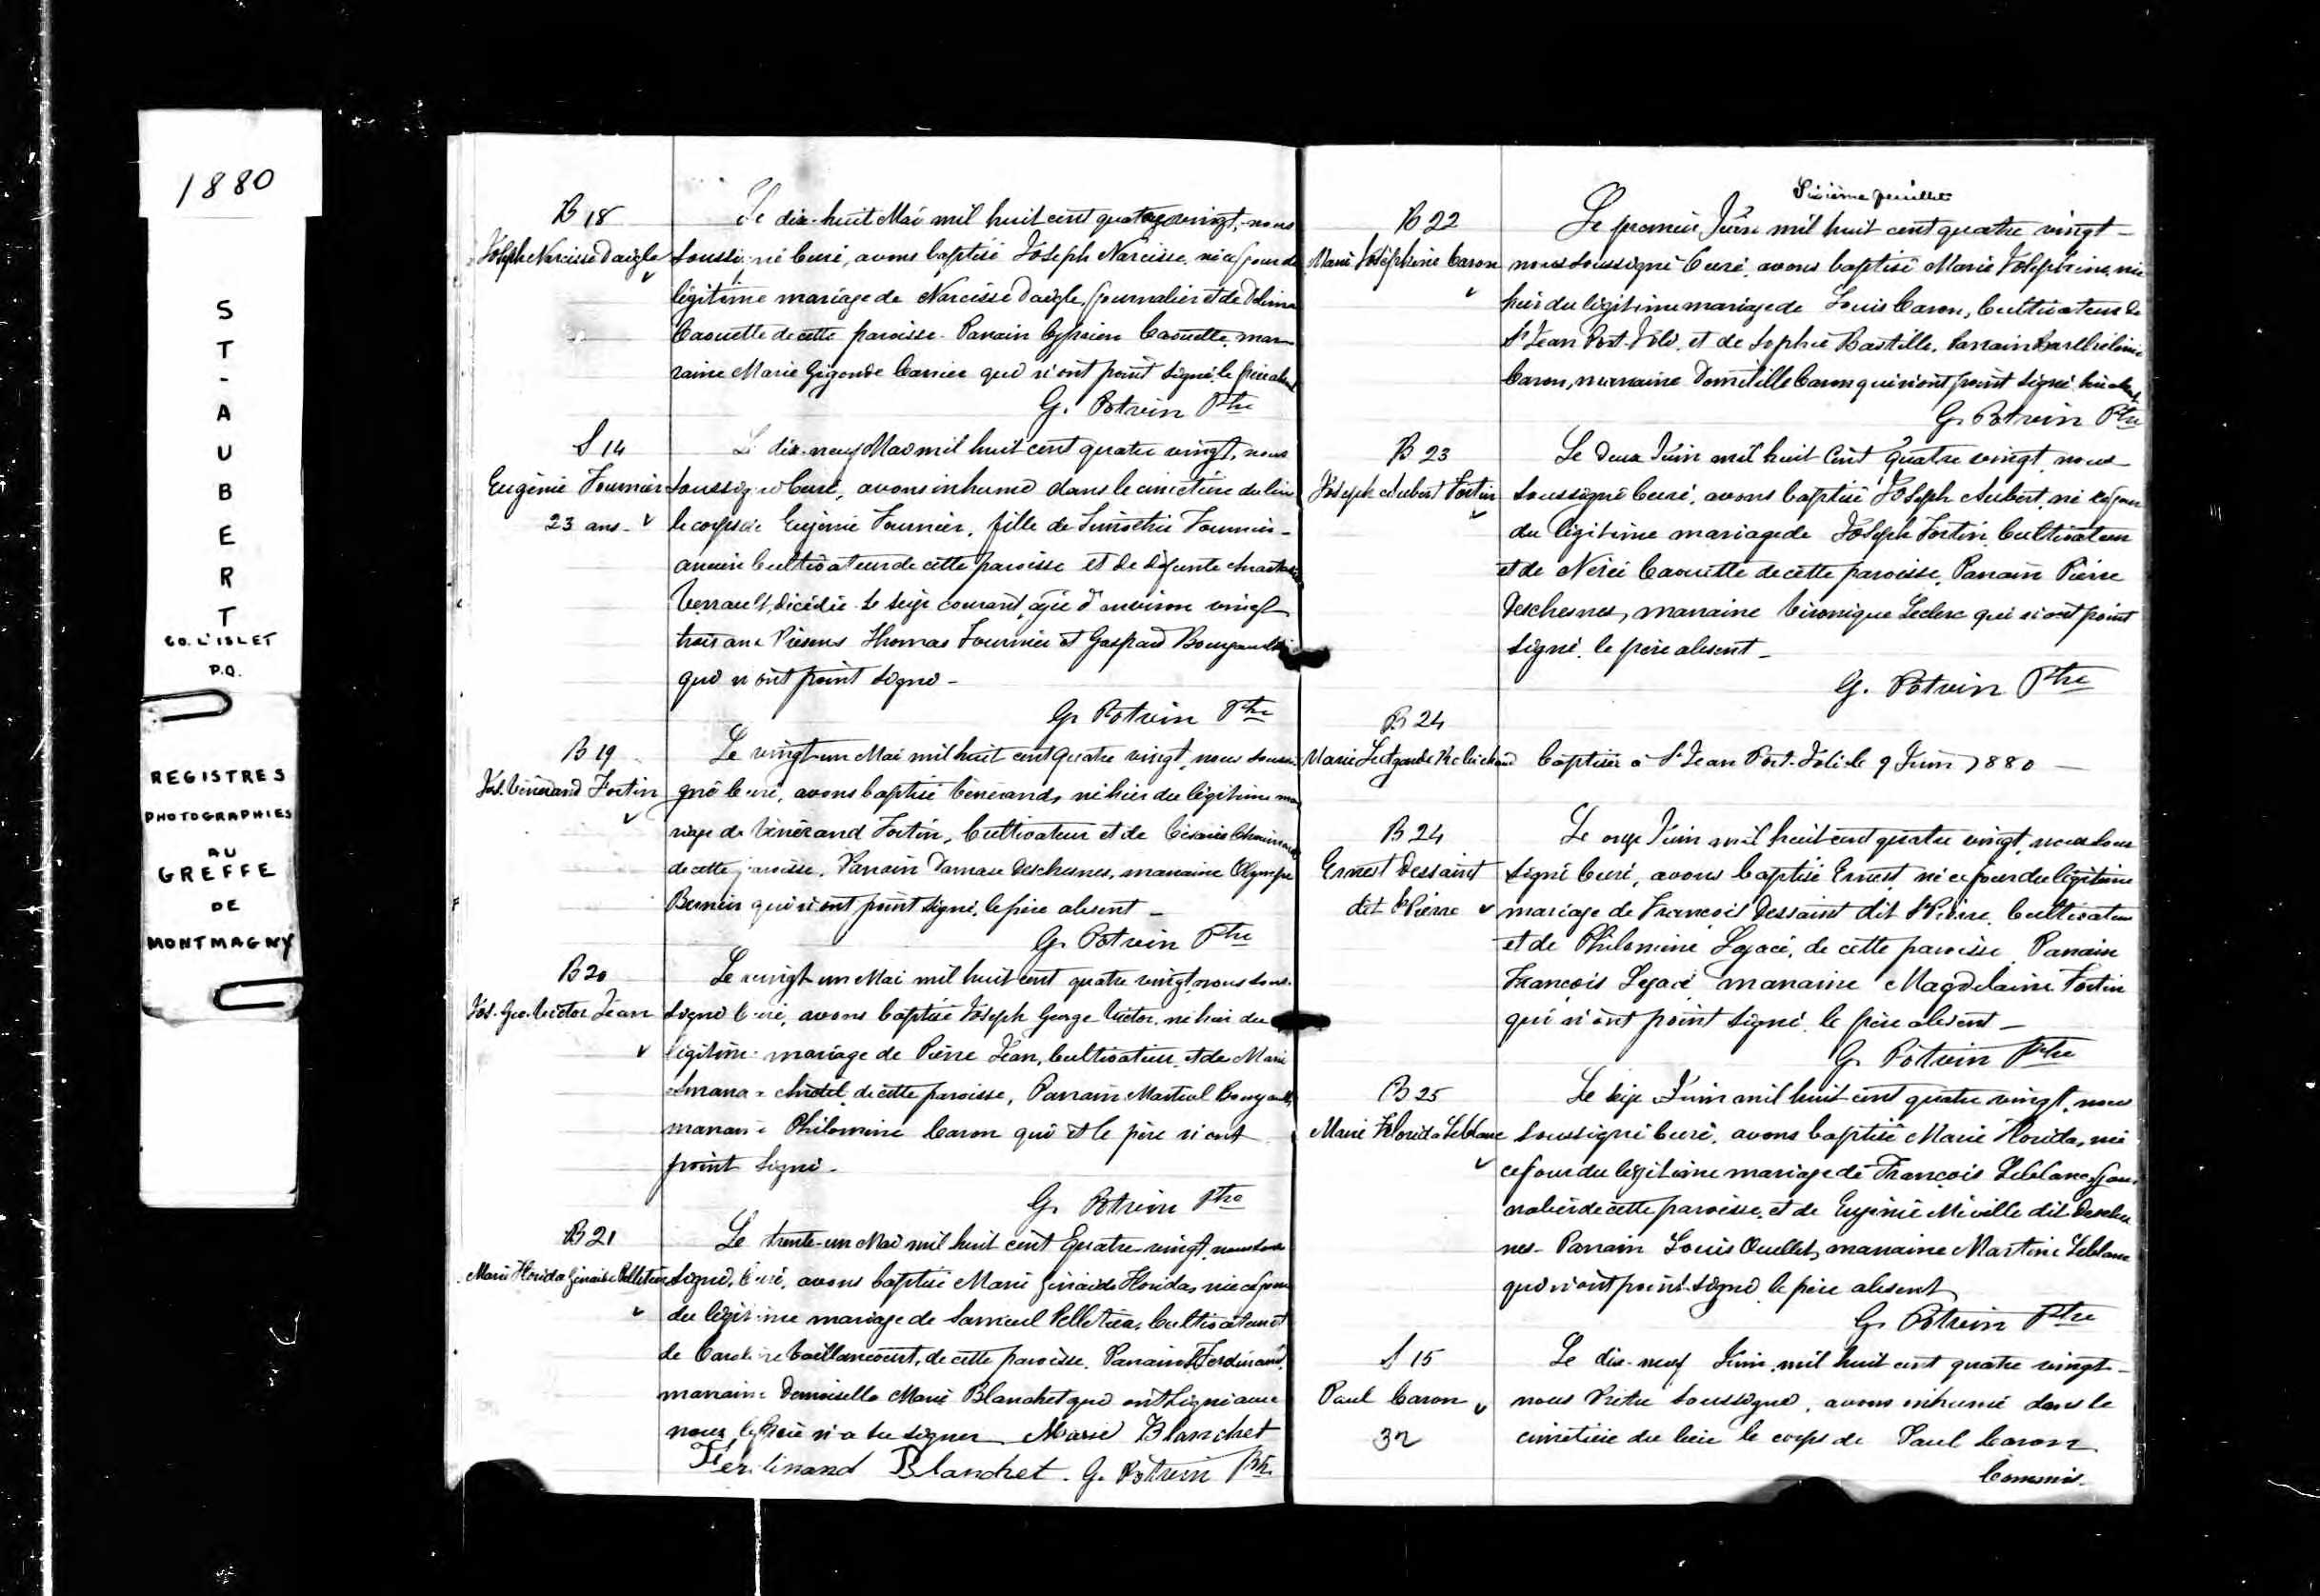 1880
S
T
-
A
U
B
E
R
T
CO. L'ISLET
P.Q.
REGISTRES
PHOTOGRAPHIES
AU
GREFFE
DE
MONTMAGNY
B 18
Joseph Narcisse Daigle
Le dix-huit Mai mil huit cent quatre vingt, nous
soussigné Curé, avons baptisé Joseph Narcisse, né ce jour du
légitime mariage de Narcisse Daigle, journalier et de Délima
Caouette de cette paroisse. Parrain Cyprien Caouette, mar
raine Marie Gigonde Carrier qui n'ont point signé, le père absent
G. Potvin Ptre
S 14
Eugénie Fournier
23 ans
Le dix-neuf Mai mil huit cent quatre vingt, nous
soussigné Curé, avons inhumé dans le cimetière du lieu
le corps de Eugénie Fournier, fille de Timothée Fournier
ancien Cultivateur de cette paroisse et de défunte
Verrault, décédée le seize courant, âgée d'environ vingt
trois ans. Présens Thomas Fournier et Gaspard Bourgault
qui n'ont point signé -
G. Potvin Ptre
B 19
Jos. Vénérand Fortin
Le vingt-un Mai mil huit cent quatre vingt, nous soussi
gné Curé, avons baptisé Vénérand, né hier du légitime ma
riage de Vénérand Fortin, Cultivateur et de Césarie Chouinard
de cette paroisse. Parrain Damase Deschesnes, marraine Olympe
Bernier qui n'ont point signé, le père absent -
G. Potvin Ptre
B 20
Jos. Geo. Victor Jean
Le vingt-un Mai mil huit cent quatre vingt, nous sous-
signé Curé, avons baptisé Joseph George Victor, né hier du
légitime mariage de Pierre Jean, Cultivateur, et de Marie
de cette paroisse, Parrain Martial Bourgault,
marraine Philomène Caron qui et le père n'ont
point signé -
G. Potvin Ptre
B 21
Marie Florida Zénaïde Pelletier
Le trente-un Mai mil huit cent Quatre-vingt, nous sous
signé, Curé, avons baptisé Marie Zénaïde Florida, née ce jour
du légitime mariage de Samuel Pelletier, Cultivateur et
de Caroline Vaillancourt, de cette paroisse. Parrain Ferdinand,
marraine Demoiselle Marie Blanchet qui ont signé avec
nous, le père n'a su signer Marie Blanchet
Ferdinand Blanchet. G. Potvin Ptre
Sixième feuillet
B 22
Marie Joséphine Caron
Le premier Juin mil huit cent quatre vingt -
nous soussigné Curé, avons baptisé Marie Joséphine, née
hier du légitime mariage de Louis Caron, Cultivateur de
St Jean Port-Joli, et de Sophie Bastille. Parrain Barthélémie
Caron, marraine Domitille Caron qui n'ont point signé,
G. Potvin Ptre
B 23
Joseph Aubert Fortin
Le deux Juin mil huit Cent quatre vingt, nous
soussigné Curé, avons baptisé Joseph Aubert, né ce jour
du légitime mariage de Joseph Fortin, Cultivateur
et de Nérée Caouette de cette paroisse, Parrain Pierre
Deschesnes, marraine Véronique Leclerc qui n'ont point
signé, le père absent -
G. Potvin Ptre
B 24
Marie Lutgarde Robichaud
baptisée à St Jean Port-Joli le 9 Juin 1880 -
B 24
Ernest Dessaint
dit St Pierre
Le onze Juin mil huit cent quatre vingt, nous sous
signé Curé, avons baptisé Ernest, né ce jour du légitime
mariage de François Dessaint dit St Pierre, Cultivateur
et de Philomène Legacé, de cette paroisse. Parrain
François Legacé marraine Magdelaine Fortin
qui n'ont point signé, le père absent -
G. Potvin Ptre
B 25
Marie Florida Leblanc
Le seize Juin mil huit cent quatre vingt, nous
soussigné Curé, avons baptisé Marie Florida, née
ce jour du légitime mariage de François Leblanc, jour
nalier de cette paroisse, et de Eugénie Miville dit Desche
nes. Parrain Louis Ouellet, marraine Martine Leblanc
qui n'ont point signé, le père absent
G. Potvin Ptre
S 15
Paul Caron
32
Le dix-neuf Juin, mil huit cent quatre vingt -
nous Prêtre soussigné, avons inhumé dans le
cimetière du lieu le corps de Paul Caron
Commis-